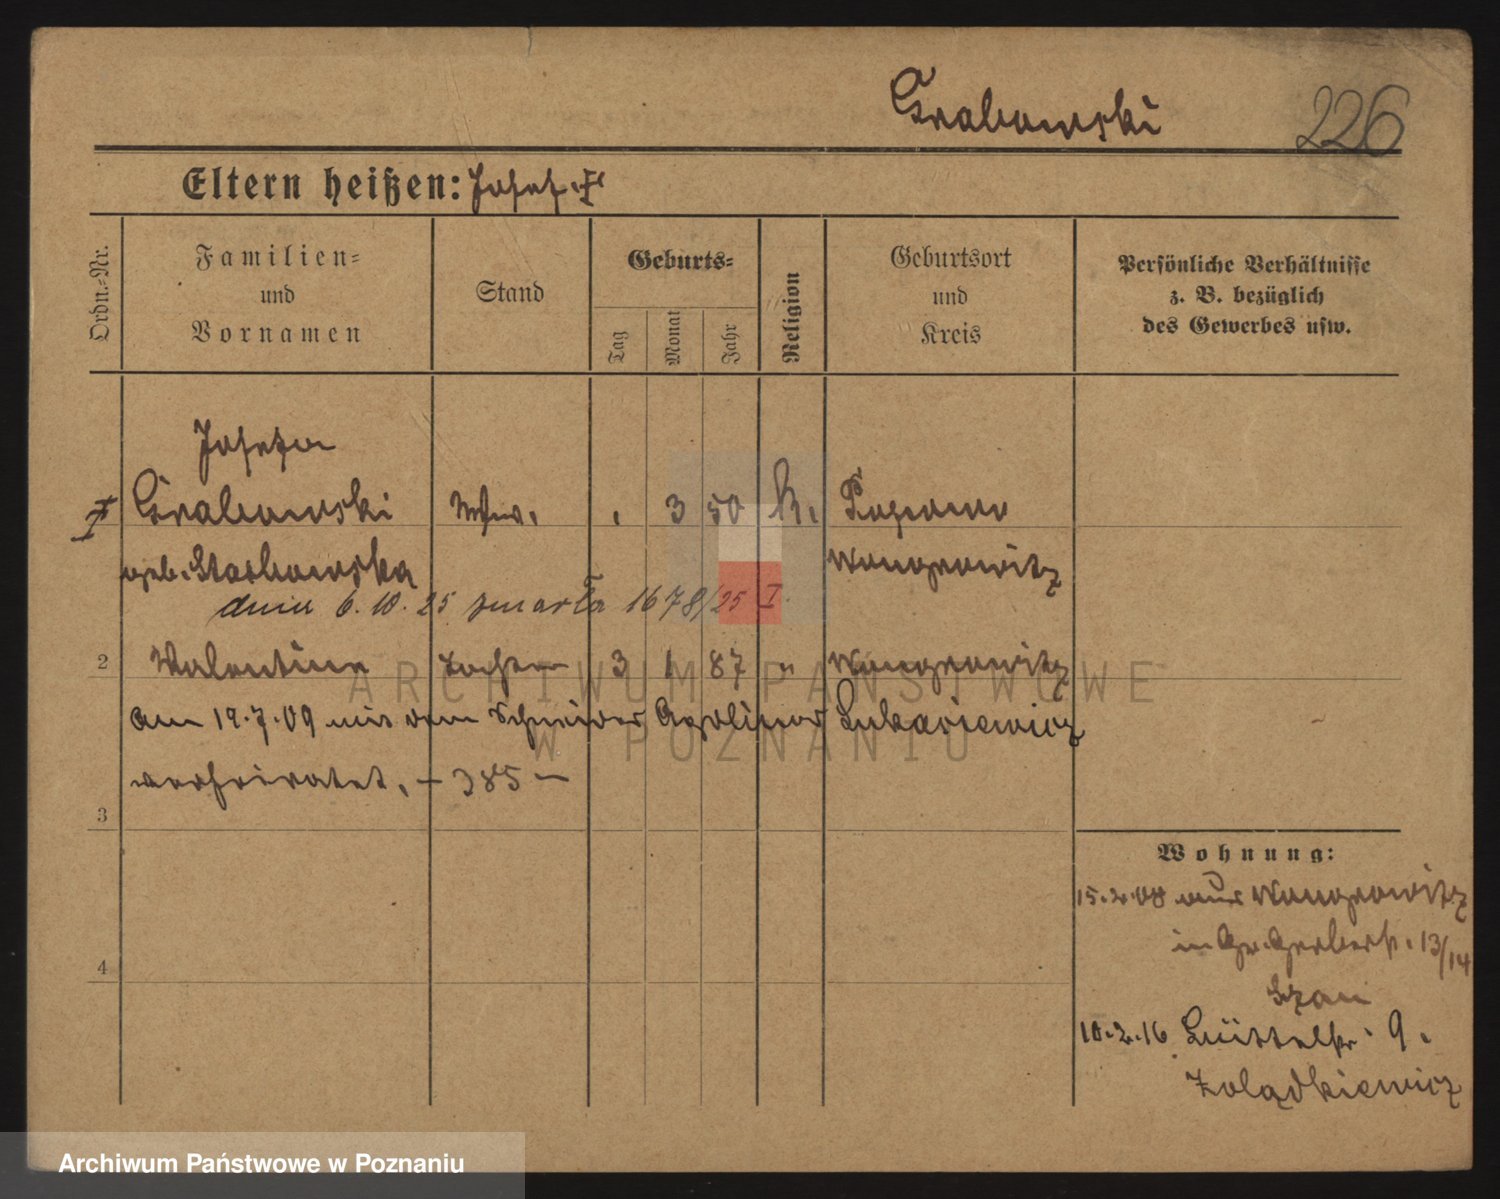 Grabowski
226
Eltern heißen: Josef. †
Ordn.-Nr.
Familien-
und
Vornamen
Stand
Geburts-
Tag
Monat
Jahr
Religion
Geburtsort
und
Kreis
Persönliche Verhältnisse
z. B. bezüglich
des Gewerbes usw.
Josefa
† Grabowski Wwe. . 3 50 K.
geb. Wongrowitz
dnia 6.10.25 zmarła 1678/25 I
2 Valentine Tochter 3 1 87 " Wongrowitz
am 19.7.09 mit dem Schneider Apolinar Lukasiewicz
verheiratet. - 385 -
3
4
Wohnung:
15.2.08 aus Wongrowitz
in Gr. Gerberst. 13/14
10.2.16 9.
Żołądkiewicz
ARCHIWUM PAŃSTWOWE
W POZNANIU
Archiwum Państwowe w Poznaniu